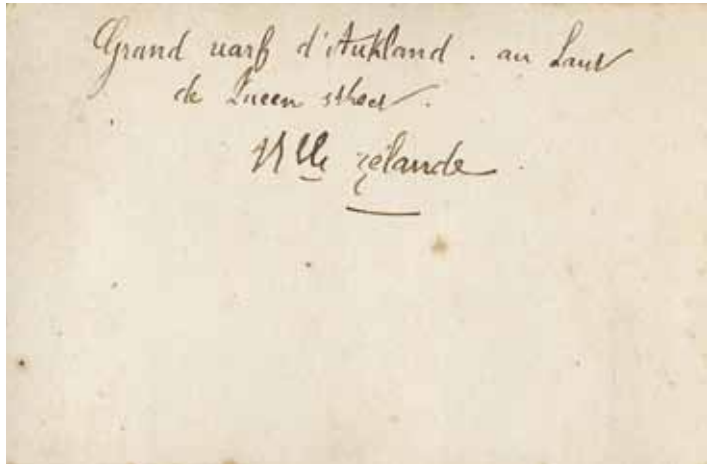 Grand uarf d'Aukland. au baut
de Queen street.
Nlle zélande.